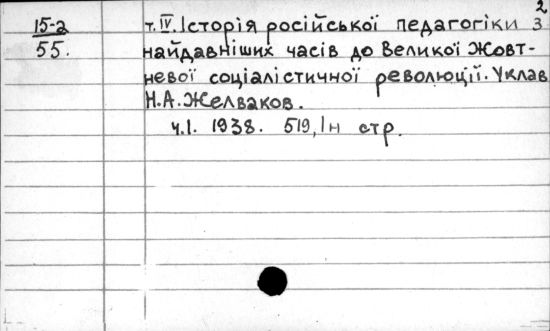 2
15-2
55.
т. IV. Історія російської педагогіки з
найдавніших часів до Великої Жовт-
невої соціалістичної революції. Уклав
Н.А. Желваков.
ч.І. 1938. 519, 1н стр.